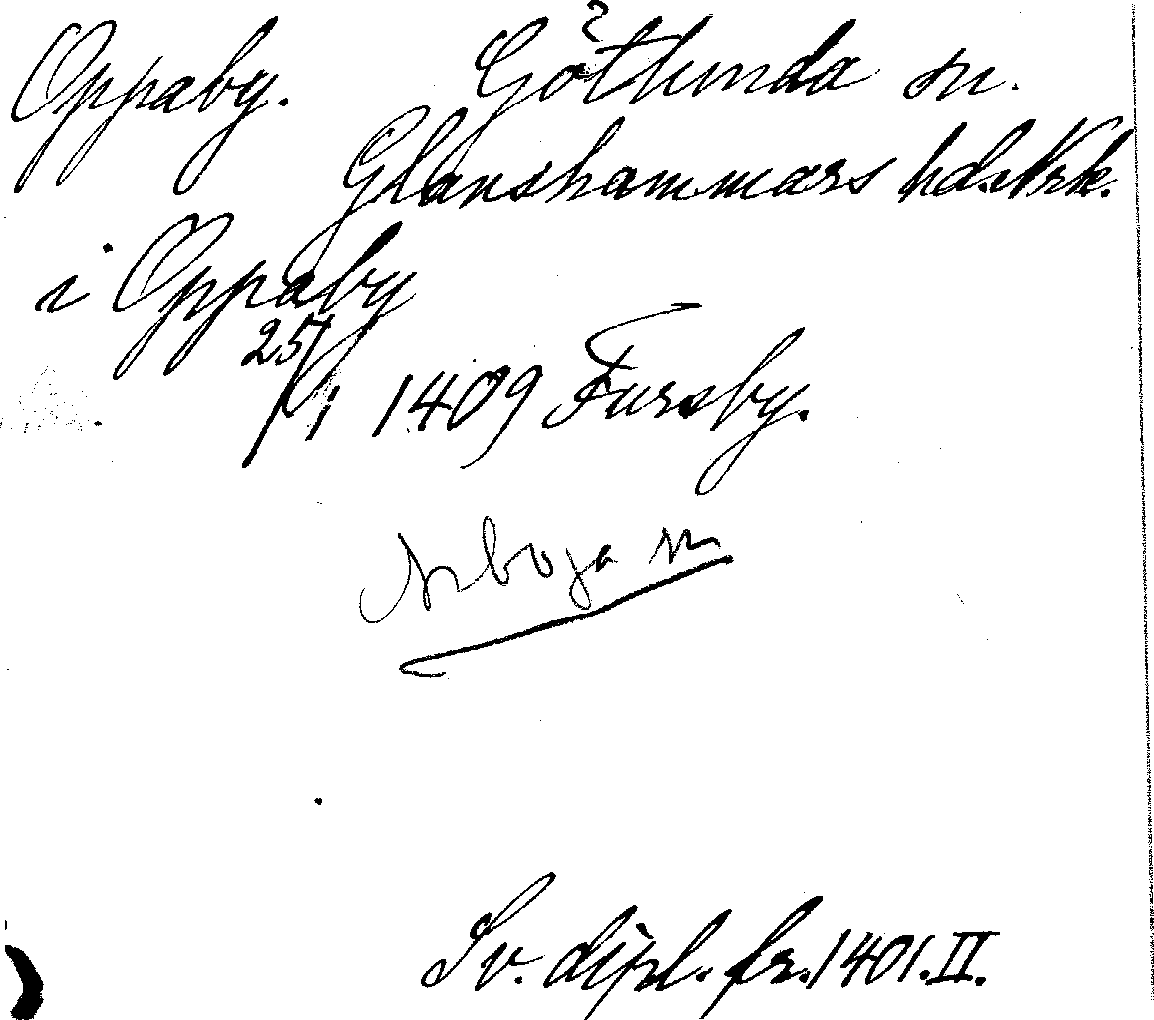 ?
Oppaby. Götlunda sn.
Glanshammars hd. Nrk.
i Oppaby
25/1 1409 Fursby.
Arboga sn
Sv. dipl. fr. 1401. II.